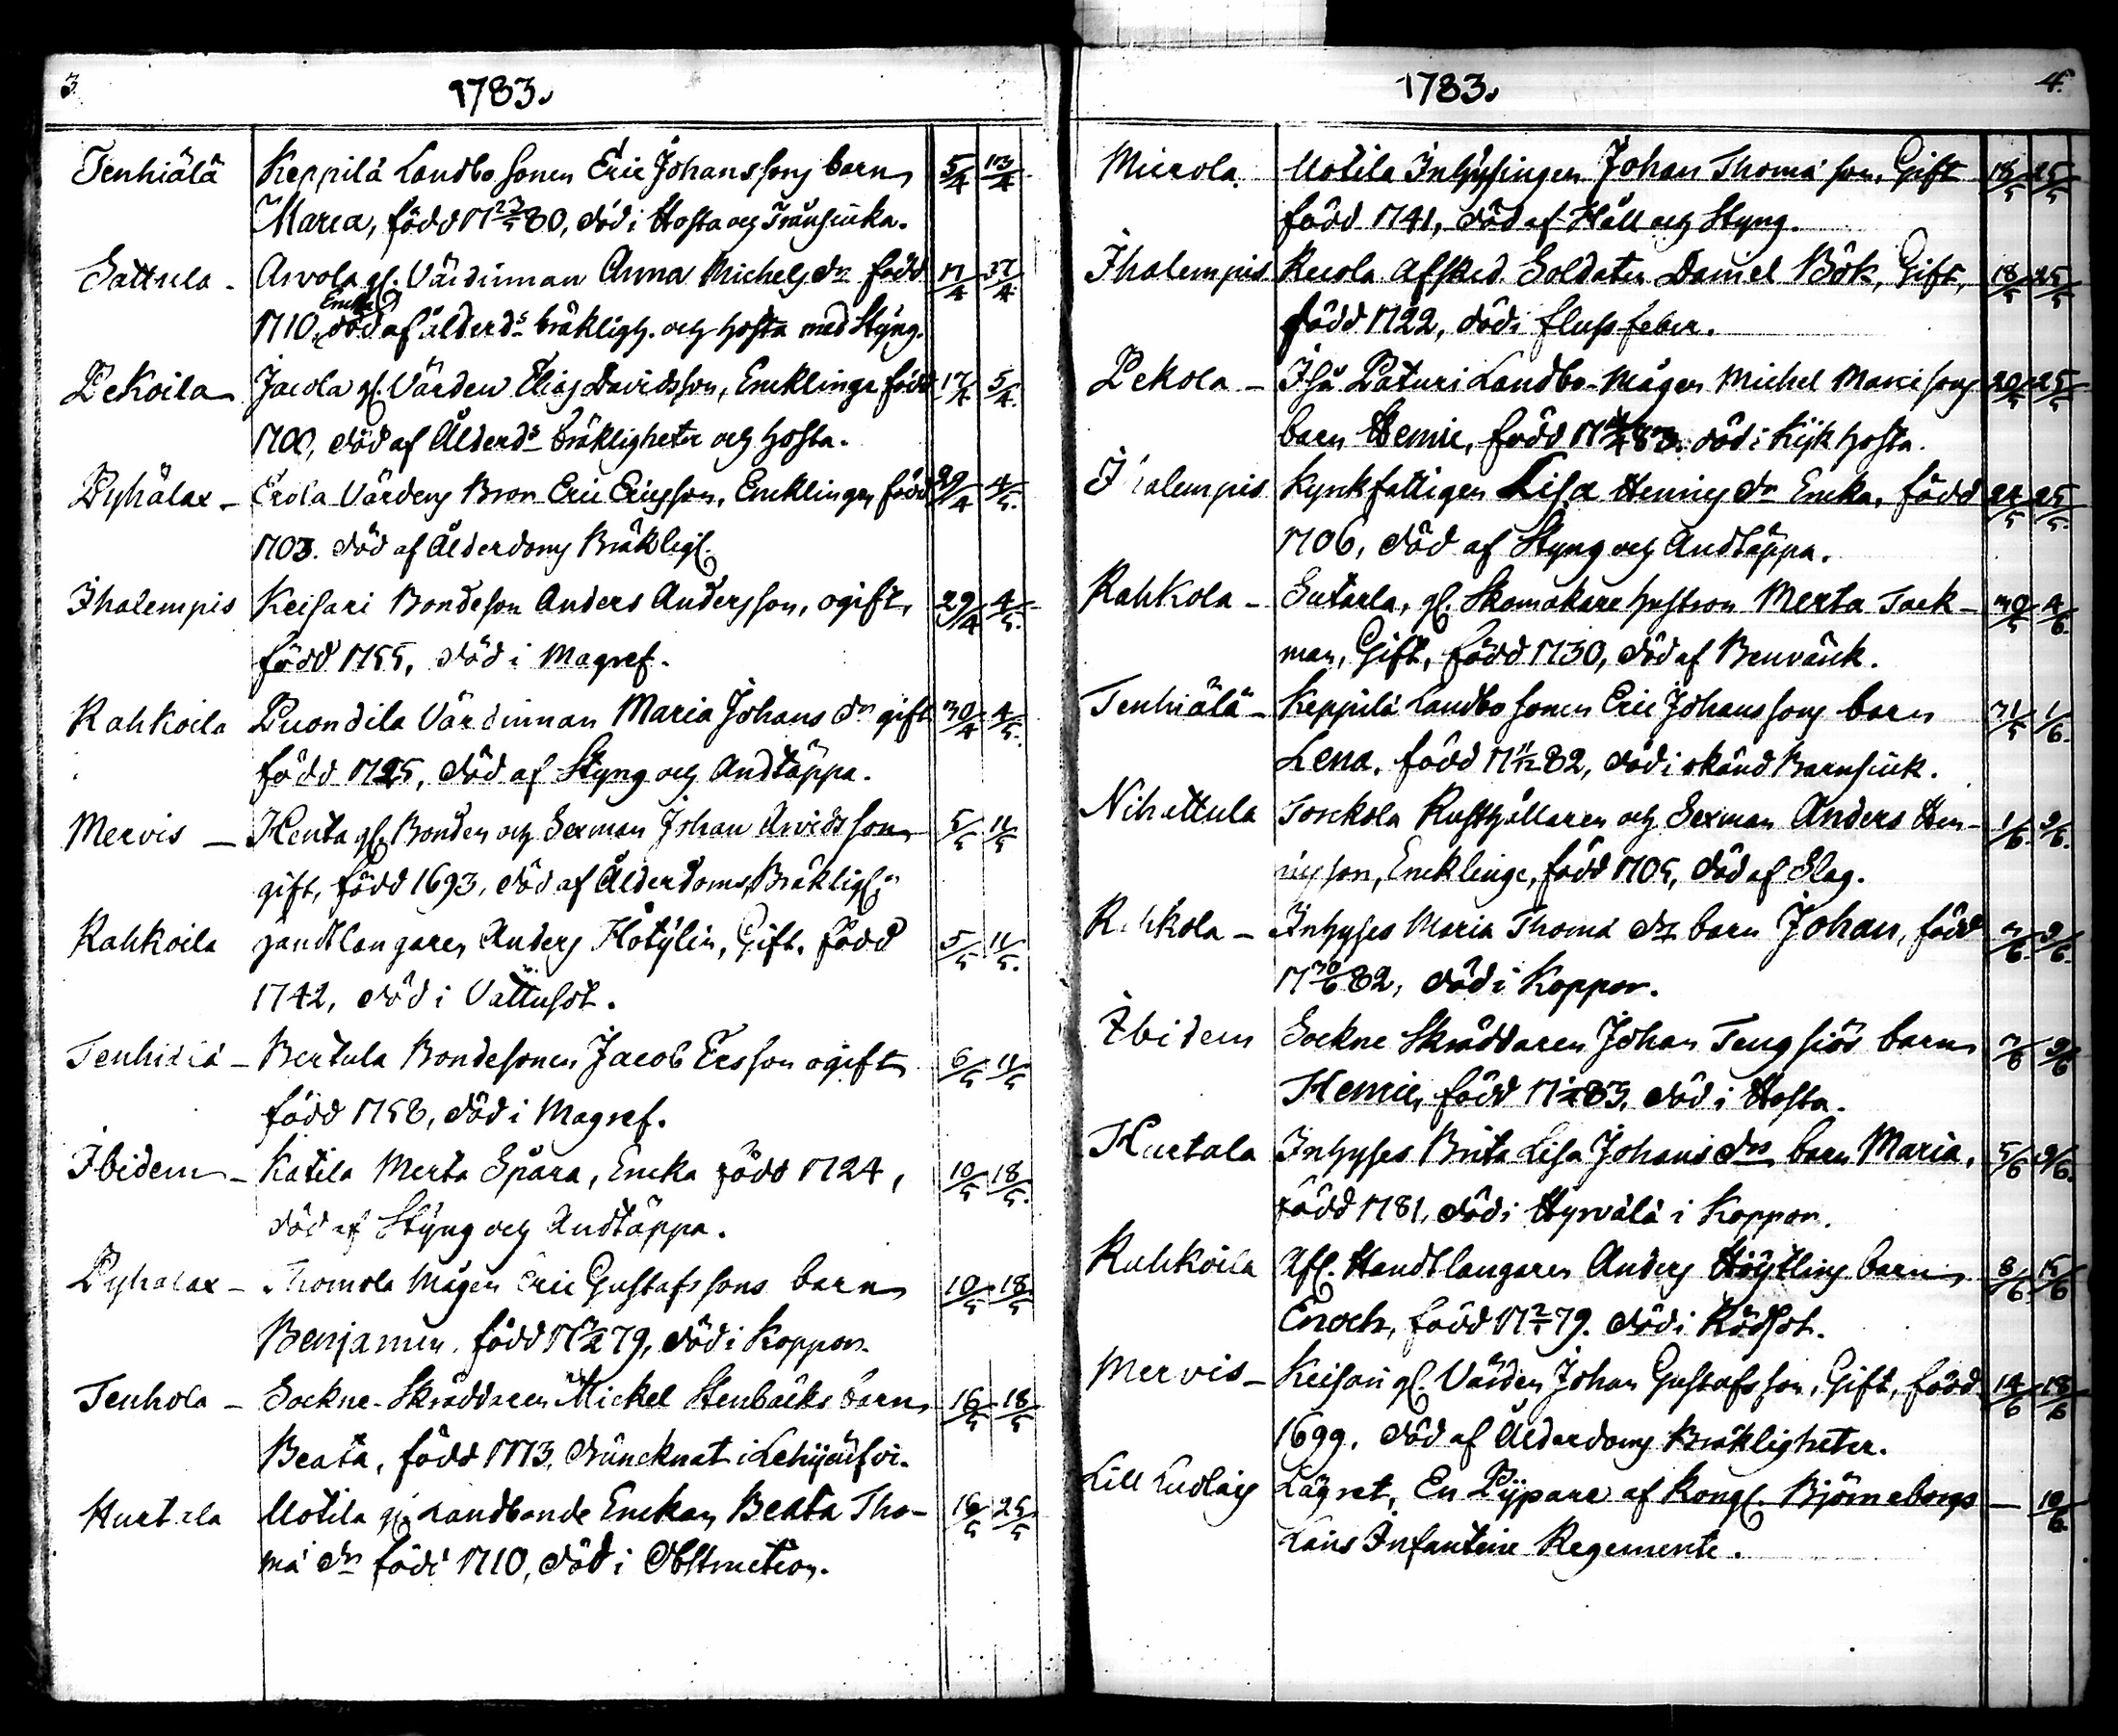 3
1783.
Tenhiälä Keppilä Landbo sonen Eric Johanssons barn 5/4 13/4
Maria, född 17 23/5 80, död i Hosta och Trånsiuka.
Sattula - Arvola gl. Värdinnan Anna Michels dr född 17/4 /4
Encka
1710, död af ålderds bräkligh. och hosta med Styng.
Pekoila - Jacola gl. Värden Elias Davidsson, Encklinge född 17/4 5/4
1700, död af Ålderds bräkligheter och hosta.
Pyhälax - Erola Värdens Bror Eric Ericsson, Encklingen, född 29/4 4/5
1703. död af Ålderdoms Bräkligh.
Ihalempis Keisari Bondeson Anders Andersson, ogift, 29/4 4/5
född 1755, död i Magref.
Rahkoila Puondila Värdinnan Maria Johans dr gift 30/4 4/5
född 1725, död af Styng och Andtäppa.
Mervis - Henta gl. Bonden och Sexman Johan Arvidsson 5/5 11/5
gift, född 1693, död af Ålderdoms Bräkligh.
Rahkoila handtlangaren Anders Hötylin, Gift, född 5/5 11/5
1742, död i Vattusot.
Tenhiälä - Bertula Bondesonen Jacob Ersson ogift 6/5 11/5
född 1758, död i Magref.
Ibidem - Katila Merta Spara, Encka född 1724, 10/5 18/5
död af Styng och Andtäppa.
Pyhälax - Thomola Mågen Eric Gustafssons barn 10/5 18/5
Benjamin, född 17 79, död i Koppor.
Tenhola - Sockne-Skräddaren Mickel Stenbäcks barn 16/5 18/5
Beata, född 1773, druncknat i Lehijärfvi.
Hurtala Uotila gl. Landbonde Enckan Beata Tho- 16/5 25/5
mä dr född 1710, död i Obstruction.
1783.
4.
Mierola. Uotila Inhysingen Johan Thomä son, Gift 18/5 25/5
född 1741, död af Håll och Styng.
Ihalempis Recola Afsked. Soldaten Daniel Bök, Gift, 18/5 25/5
född 1722, död i flussfeber.
Pekola - Iso Paturi Landbo-Mågen Michel Marcisons 20/5 25/5
barn Henric, född 17 83. död i Kijkhosta.
Ihalempis Kyrkfattigen Lisa Henrics dr Encka, född 24/5 25/5
1706, död af Styng och Andtäppa.
Rahkola - Sutarla, gl. Skomakare hustron Merta Tack- 30/5 4/6
man, Gift, född 1730, död af Benvärck.
Tenhiälä - Keppilä Landbo sonen Eric Johanssons barn 31/5 1/6
Lena, född 17 11/12 82, död i okänd Barnsiuk.
Nihattula Torckola Rusthållaren och Sexman Anders Hen- 1/6 9/6
ricsson, Encklinge, född 1705, död af Slag.
Rahkola - Inhyses Maria Thomä drs barn Johan, född 3/6 9/6
17 30/6 82, död i Koppor.
Ibidem Sockne Skräddaren Johan Tengsiös barn 7/6 9/6
Henric, född 17 83, död i Hosta.
Hurtala Inhyses Brita Lisa Johans drs barn Maria, 5/6 9/6
född 1781, död i Hyrvälä i Koppor.
Rahkoila Afl. Handtlangaren Anders Höytlins barn 8/6 15/6
Enoch, född 17 2/5 79. död i Rödsot.
Mervis - Keisari gl. Värden Johan Gustafsson, Gift, född 14/6 18/6
1699, död af Ålderdoms Bräkligheter.
Lill Ludlais Lägret, En Pijpare af Kongl. Björneborgs - 10/6
Läns Infanterie Regemente.